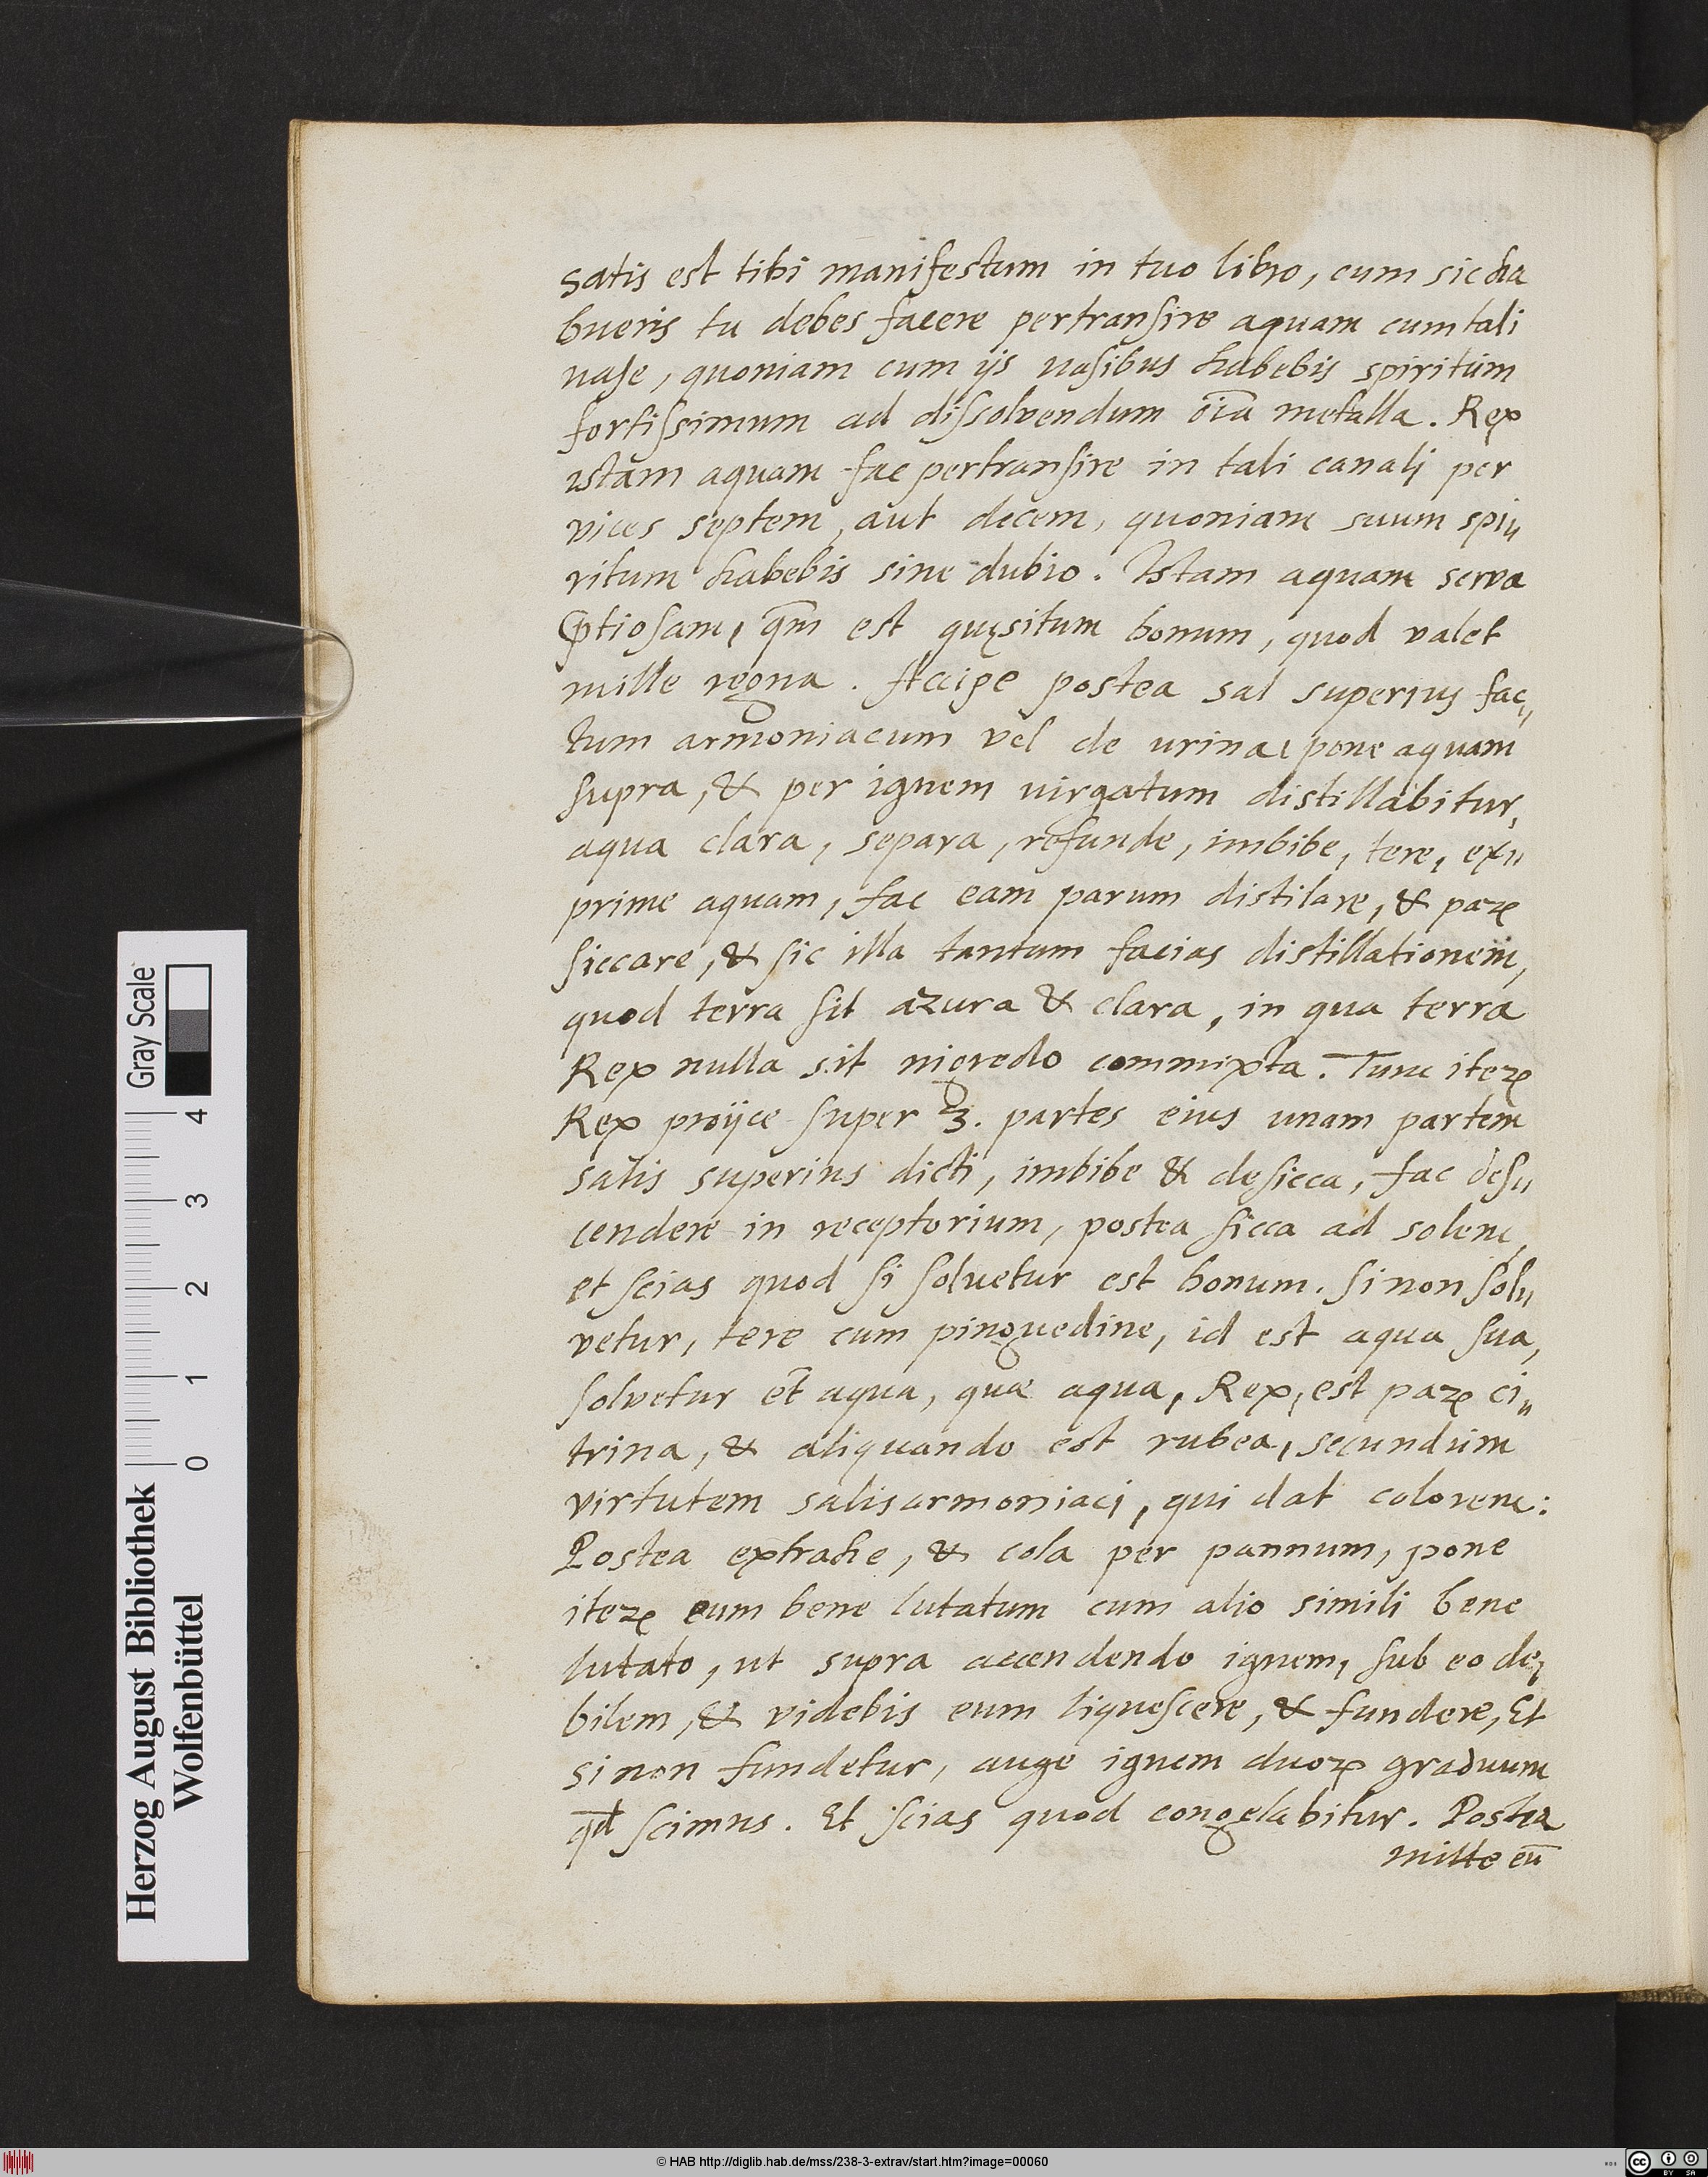 satis est tibi manifestum in tuo libro, cum sic ha
bueris tu debes facere pertransire aquam cum tali
uase, quoniam cum ijs uasibus habebis spiritum
fortissimum ad dissolvendum oı̄a metalla. Rex
istam aquam fac pertransire in tali canali per
vices septem, aut decem, quoniam suum spi„
ritum habebis sine dubio. Istam aquam serva
p̄tiosam, qm̄ est quęsitum bonum, quod valet
mille regna. Accipe postea sal superius fac„
tum armoniacum vel de urina, pone aquam
supra, & per ignem uirgatum distillabitur,
aqua clara, separa, refunde, imbibe, tere, ex„
prime aquam, fac eam parum distilare, & paꝝ
siccare, & sic illa tantum facias distillationem,
quod terra sit azura & clara, in qua terra
Rex nulla sit nigredo commixta. Tunc iteꝝ
Rex proijce super 3. partes eius unam partem
salis superius dicti, imbibe & desicca, fac des„
cendere in receptorium, postea sicca ad solem,
et scias quod si soluetur est bonum. si non sol„
vetur, tere cum pinguedine, id est aqua sua,
solvetur et̄ aqua, quæ aqua, Rex, est paꝝ ci„
trina, & aliquando est rubea, secundum
virtutem salis armoniaci, qui dat colorem:
Postea extrahe, & cola per pannum, pone
iteꝝ eum bene lutatum cum alio simili bene
lutato, ut supra accendendo ignem, sub eo de„
bilem, & videbis eum liquescere, & fundere, Et
si non fundetur, auge ignem duoꝝ graduum
qd̄ scimus. Et scias quod congelabitur. Postea
mitte eū
Gray Scale
4
3
2
1
0
Herzog August Bibliothek
Wolfenbüttel
© HAB http://diglib.hab.de/mss/238-3-extrav/start.htm?image=00060